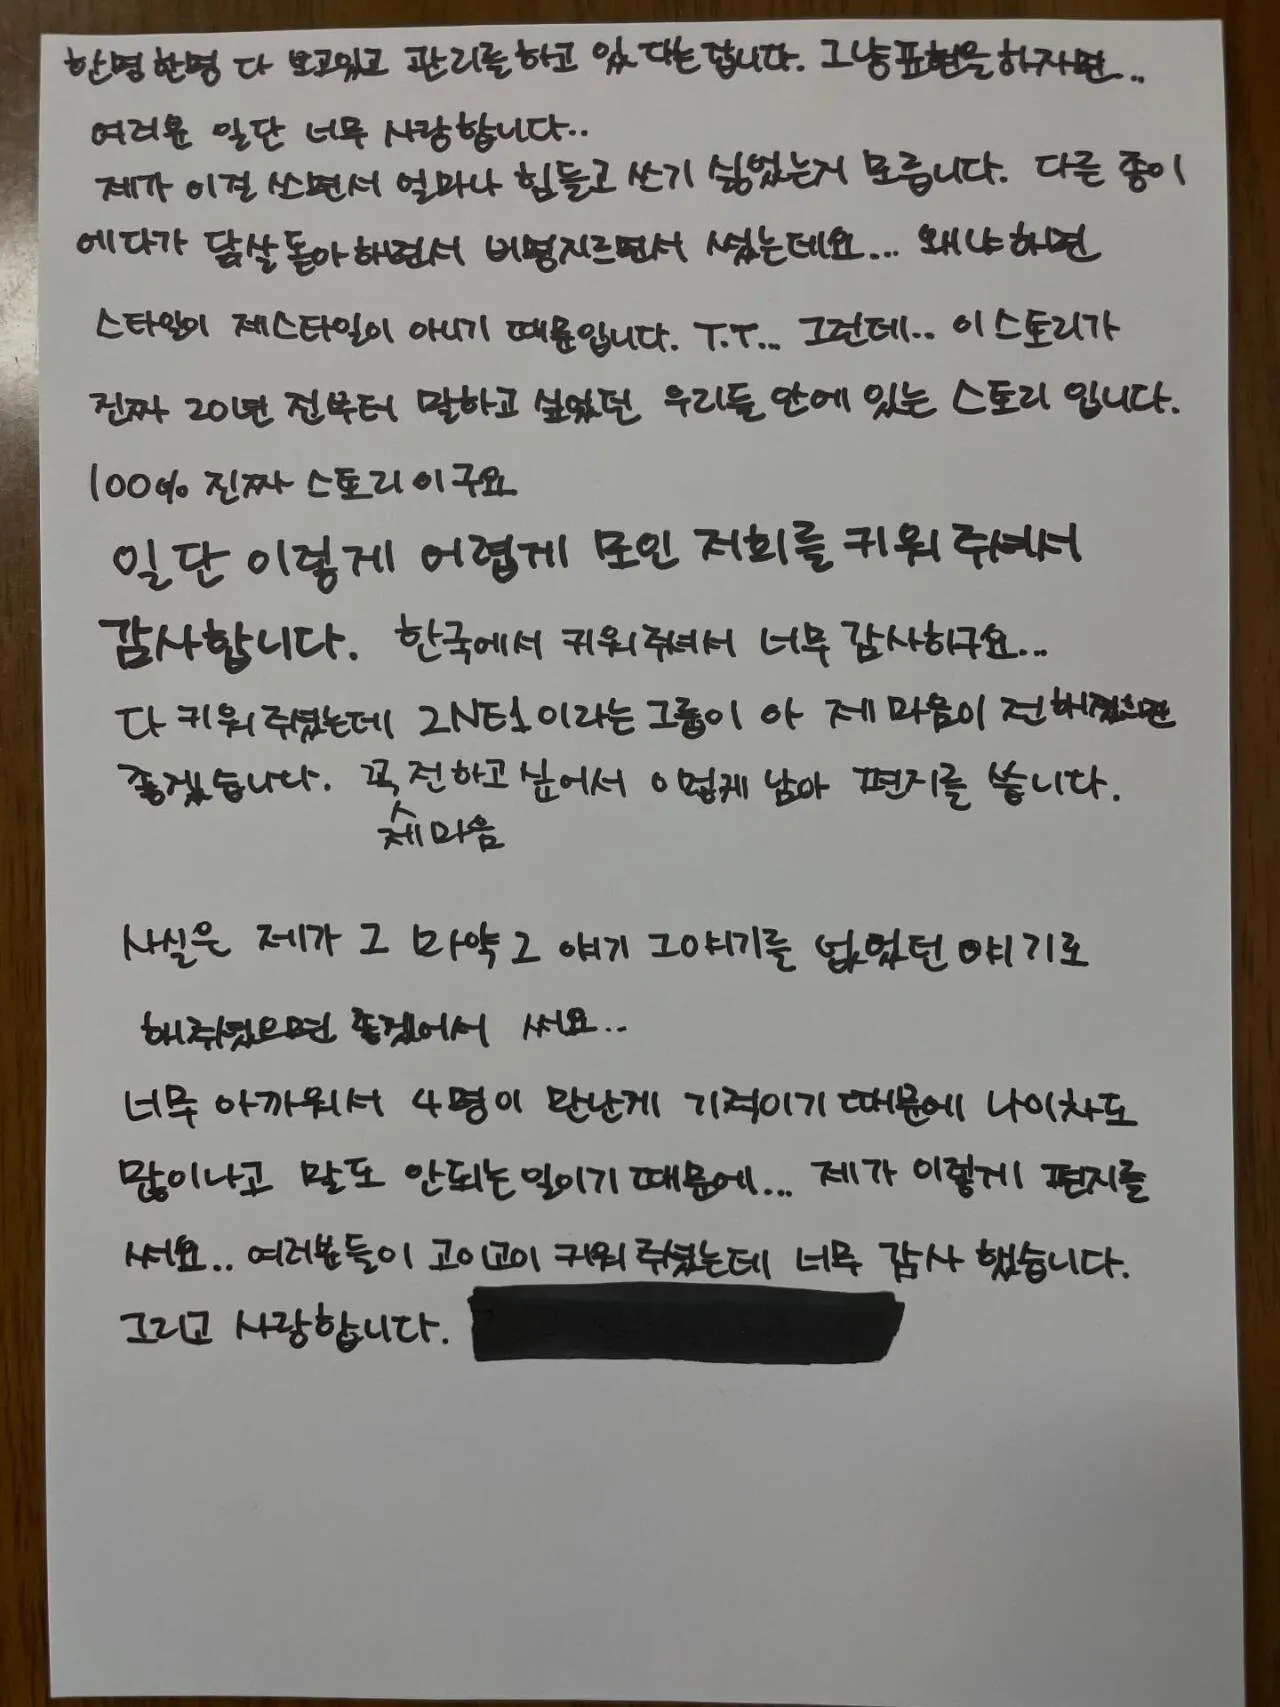 한명한명 다 보고있고 관리를하고 있다는겁니다. 그냥표현을하자면...
여러분 일단 너무 사랑합니다..
제가 이걸 쓰면서 얼마나 힘들고 쓰기 싫었는지 모릅니다. 다른 종이
에다가 닭살돋아하면서 비명지르면서 썼는데요... 왜냐하면
스타일이 제스타일이 아니기 때문입니다. T.T... 그런데.. 이스토리가
진짜 20년 전부터 말하고 싶었던 우리들 안에 있는 스토리 입니다.
100% 진짜 스토리이구요
일단 이렇게 어렵게 모인 저희를 키워 주셔서
감사합니다. 한국에서 키워주셔서 너무 감사하구요...
다 키워주셨는데 2NE1이라는그룹이 아 제 마음이 전해졌으면
좋겠습니다. 꼭 전하고싶어서 이렇게 남아 편지를 씁니다.
제마음
사실은 제가 그 마약 그 얘기 그얘기를 없었던 얘기로
해주셨으면 좋겠어서 써요..
너무 아까워서 4명이 만난게 기적이기때문에 나이차도
많이나고 말도 안되는일이기때문에... 제가 이렇게 편지를
써요.. 여러분들이 고이고이 키워주셨는데 너무 감사 했습니다.
그리고 사랑합니다.